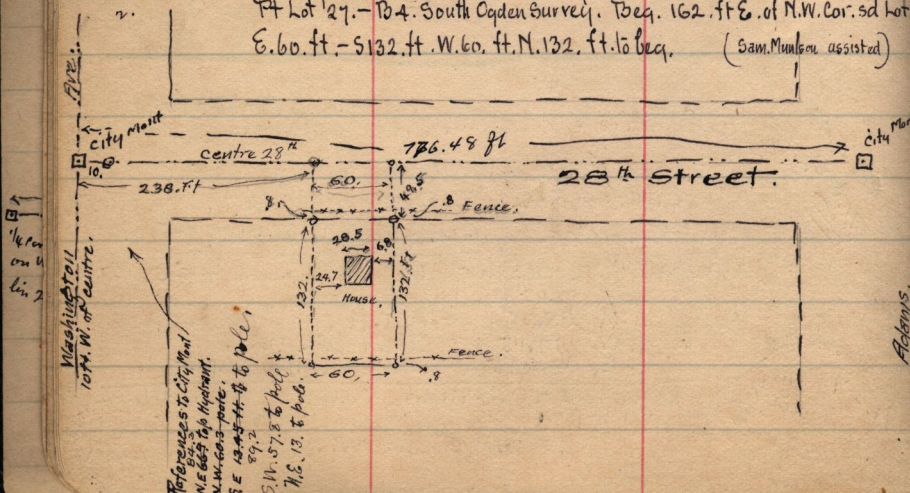 2.
Pt Lot 27.- B4. South Ogden Survey. Beg. 162.ft E. of N.W. Cor. sd Lot
E.60.ft.- S132.ft. W.60. ft. N.132. ft. to beg.
(Sam. Munson assisted)
Ave.
City Mont
City Mon
776.48 ft
centre 28th
10.
238.Ft
60.
49.5
28th Street.
.8
.8
Fence.
28.5
6.8
24.7
132.
132.Ft
House.
Fence.
60.
.8
Washington
10ft. W. of centre.
1/4
on
lin 2
Adams.
References to City Mont
84.3
N.E 66.7 top Hydrant.
N.W. 60.3 pole.
S E 13.45 ft. to pole.
89.2
S.W. 57.8 to pole
N.E. 13. to pole.